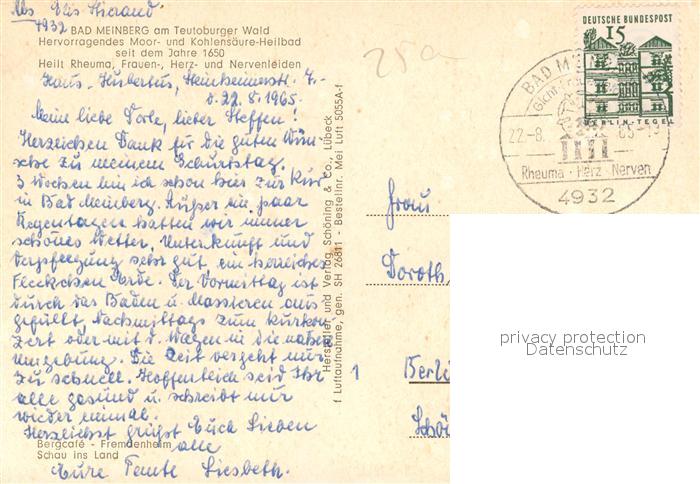 4932 BAD MEINBERG am Teutoburger Wald
Hervorragendes Moor- und Kohlensäure-Heilbad
seit dem Jahre 1650
Heilt Rheuma, Frauen-, Herz- und Nervenleiden
Haus Hubertus,
d. 22.8.1965.
Meine liebe Dorle, lieber Steffen!
Herzlichen Dank für die guten Wün-
sche zu meinem Geburtstag.
3 Wochen bin ich schon hier zur Kur
in Bad Meinberg. Außer ein paar
Regentagen hatten wir immer
schönes Wetter, Unterkunft und
Verpflegung sehr gut, ein herrliches
Fleckchen Erde. Der Vormittag ist
durch das Baden u. Massieren aus-
gefüllt, Nachmittags zum Kurkon-
zert oder mit d. Wagen in die nähere
Umgebung. Die Zeit vergeht nur
zu schnell. Hoffentlich seid Ihr
alle gesund u. schreibt mir
wieder einmal.
Herzlichst grüßt Euch Lieben
alle
Eure Tante Liesbeth.
Bergcafé - Fremdenheim
Schau ins Land
Hersteller und Verlag Schöning & Co., Lübeck
f Luftaufnahme, gen. SH 26811 - Bestellnr. Mei Luft 5055A-f
25a
DEUTSCHE BUNDESPOST
15
BERLIN-TEGEL
BAD M
22.-8.
65-19
Rheuma · Herz · Nerven
4932
Frau
Doroth
1
Berli
Schö
privacy protection
Datenschutz